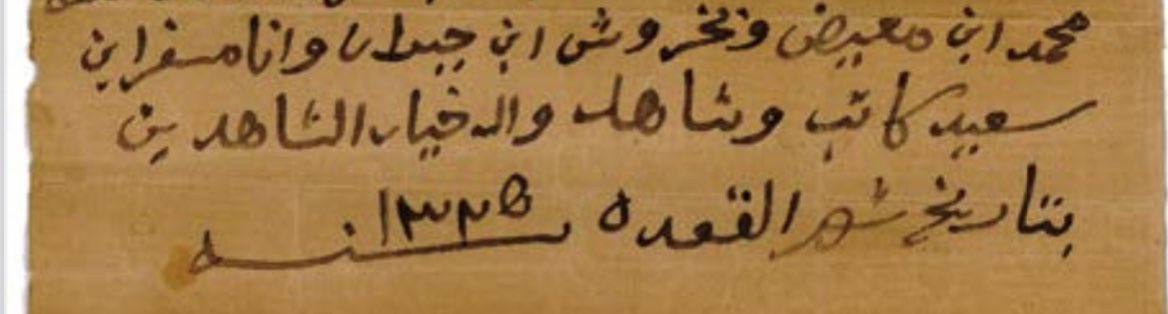 محمد ابن معيض وخروش ابن جبران وانا مسفر ابن
سعيد كاتب وشاهد والله خيار الشاهدين
بتاريخ شهر القعده سنه ١٣٣٥